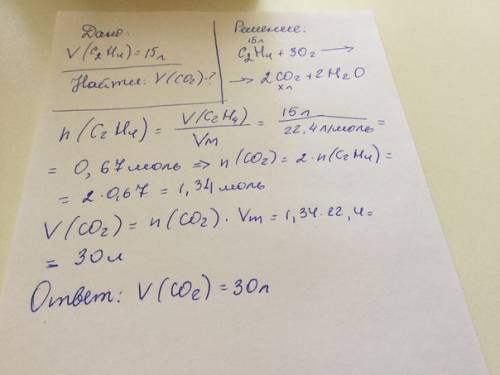 Дано:
V(C₂H₄)=15л
Найти: V(CO₂)-?
Решение:
15л
C₂H₄ + 3O₂ ⟶
⟶ 2CO₂ + 2H₂O
хл
n(C₂H₄) = V(C₂H₄)/Vm = 15л/22,4л/моль =
= 0,67моль => n(CO₂) = 2·n(C₂H₄) =
= 2·0,67 = 1,34моль
V(CO₂) = n(CO₂)·Vm = 1,34·22,4=
= 30л
Ответ: V(CO₂) = 30л